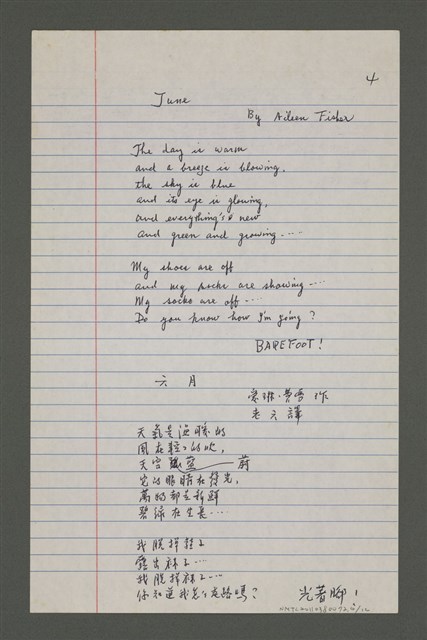 4
June
By Aileen Fisher
The day is warm
and a breeze is blowing,
the sky is blue
and its eye is glowing,
and everything's new
and green and growing....
My shoes are off
and my socks are showing....
My socks are off....
Do you know how I'm going?
BAREFOOT!
六月
作
譯
天氣是温暖的
風在輕々的吹，
天空 藍 蔚
它的眼睛在發光，
萬物都是新鮮
碧綠在生長…
我脫掉鞋子
露出袜子…
我脫掉袜子…
你知道我怎么走路嗎？
光著腳！